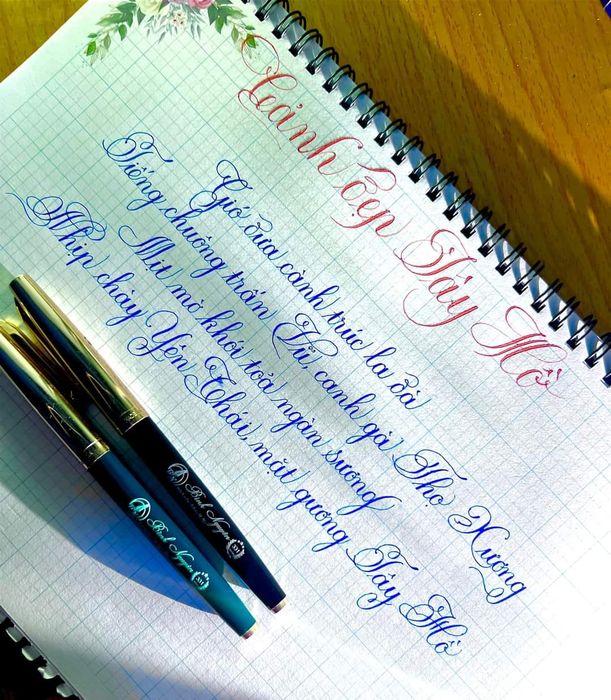 Cảnh đẹp Tây Hồ
Gió đưa cành trúc la đà
Tiếng chuông trấn Vũ, canh gà Thọ Xương
Mịt mờ khói tỏa ngàn sương
Nhịp chày Yên Thái, mặt gương Tây Hồ
Bình Nguyên
Bình Nguyên